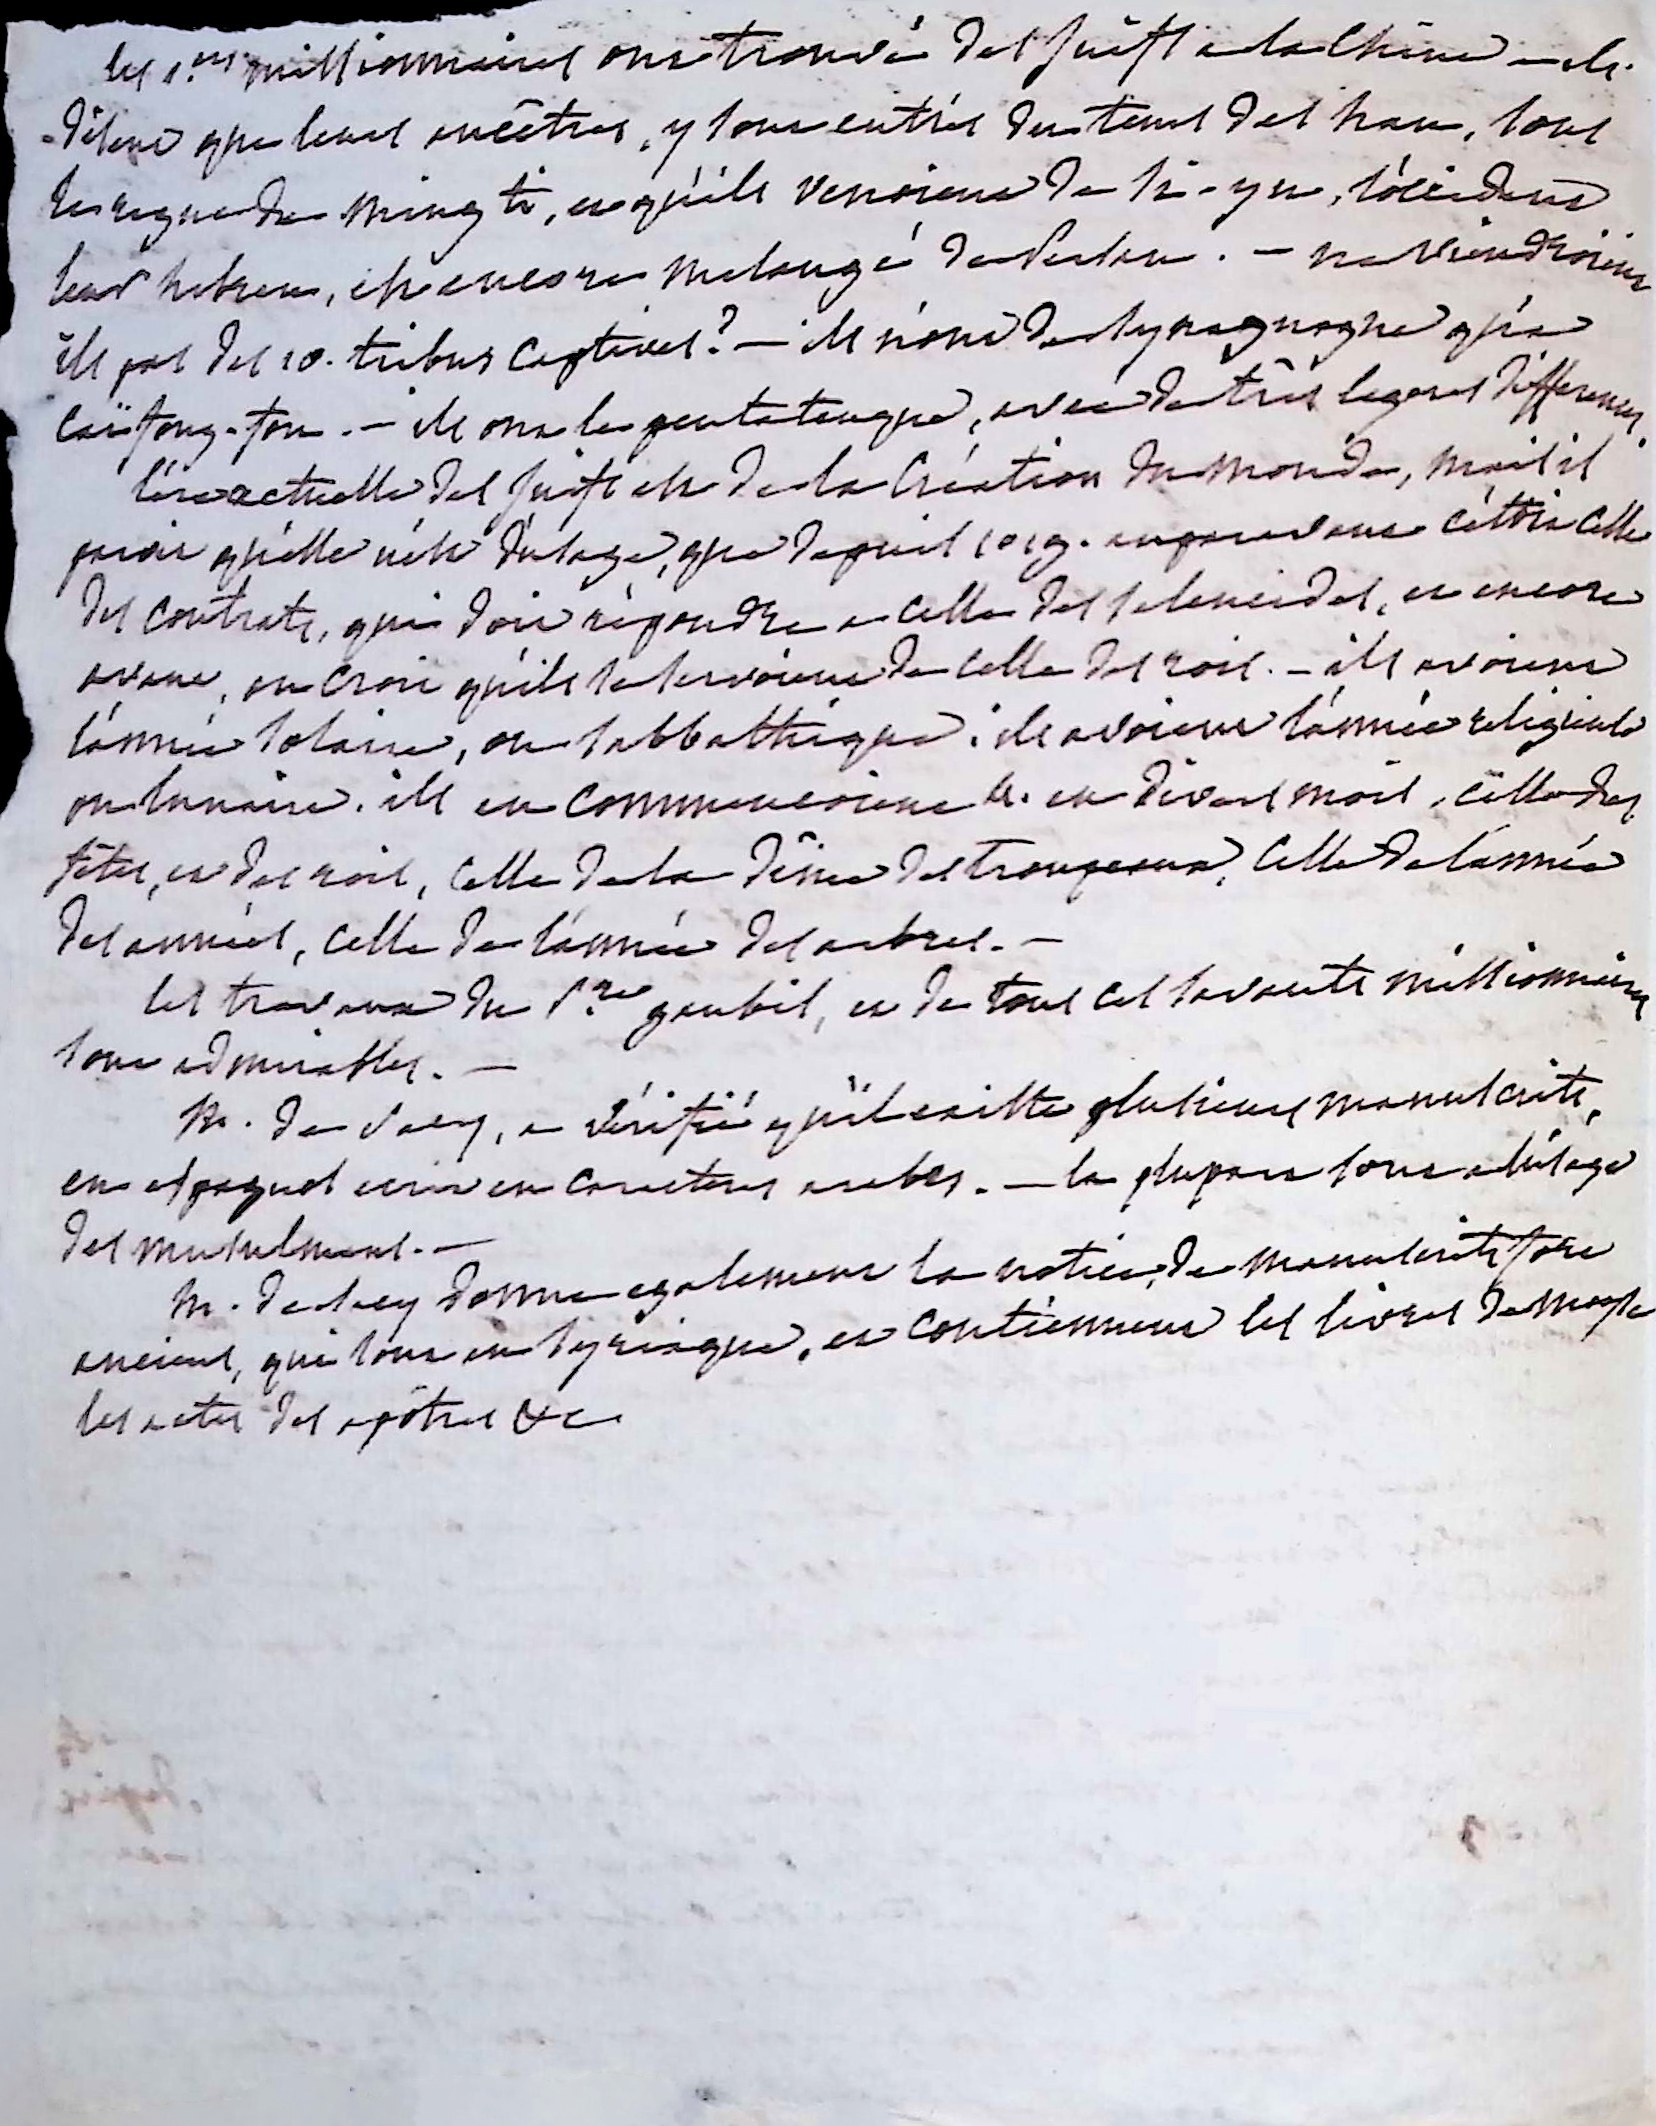 les 1.ers missionnaires ont trouvé des juifs a la Chine – ils
disent que leurs ancêtres, y sont entrés du tems des han, sous
le regne de ming ti, et qu'ils venoient de si-yu, l'occident
leur hebreu, est encore melangé de Persan. – ne viendroient
ils pas des 10. tribus captives? – ils n'ont de synagnogue qu'a
Caï fong-fou. – ils ont le pentateuque, avec de très legeres differences.
l'ère actuelle des juifs est de la Création du monde, mais il
parait qu'elle n'est d'usage, que depuis 1019. auparavant c'étoit celle
des contrats, qui doit répondre a celle des seleucides, et encore
avant, on croit qu'ils se servoient de celle des rois. – ils avoient
l'année solaire, ou sabbathique. ils avoient l'année religieuse
ou lunaire. ils en commencoient en divers mois, celle des
fêtes, et des rois, celle de la dîme des troupeaux, celle de l'année
des années, celle de l'année des arbres. –
les travaux du P.re gaubil, et de tous ces savants missionnaires
sont admirables. –
M. de Sacy, a vérifié qu'il existe plusieurs manuscrits,
en espagnol ecrit en caracteres arabes. – la plupart sont a l'usage
des musulmans. –
M. de sacy donne egalement la notice, de manuscrits fort
anciens, qui sont en syriaque, et contiennent les livres de moyse
les actes des apôtres &c